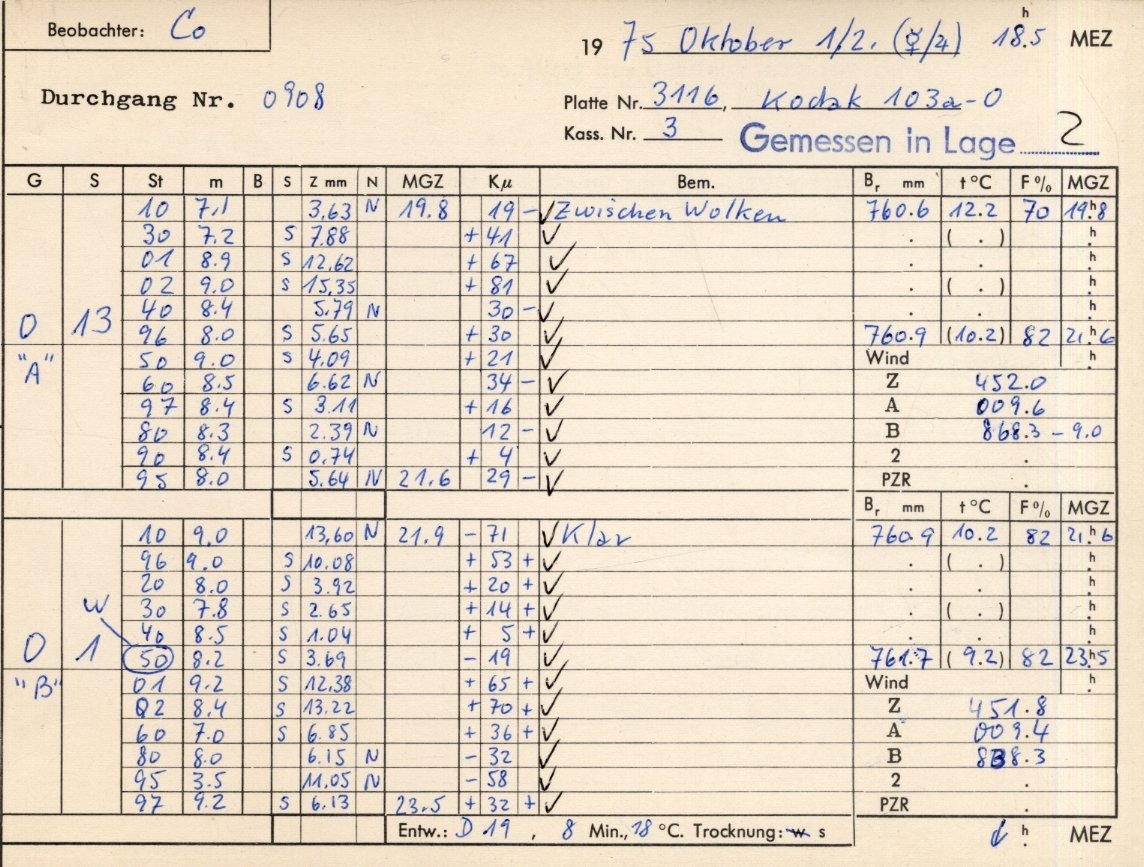 Beobachter: Co
19 75 Oktober 1/2. (☿/♃) 18.5 h MEZ
Durchgang Nr. 0908
Platte Nr. 3116, Kodak 103a-O
Kass. Nr. 3 Gemessen in Lage 2
G S St m B S Z mm N MGZ Kμ Bem. Br mm t °C F % MGZ
10 7.1 3,63 N 19.8 19 - ✓ Zwischen Wolken 760.6 12.2 70 19.h8
30 7.2 S 7.88 + 41 ✓ . ( . ) h.
01 8.9 S 12,62 + 67 ✓ . . h.
02 9.0 S 15,35 + 81 ✓ . ( . ) h.
40 8.4 5,79 N 30 - ✓ . . h.
0 13 96 8.0 S 5.65 + 30 ✓ 760.9 (10.2) 82 21.h6
"A" 50 9.0 S 4.09 + 21 ✓ Wind h.
60 8.5 6.62 N 34 - ✓ Z 452.0
97 8.4 S 3.11 + 16 ✓ A 009.6
80 8.3 2.39 N 12 - ✓ B 868.3 - 9.0
90 8.4 S 0,74 + 4 ✓ 2 .
95 8.0 5.64 N 21.6 29 - ✓ PZR .
Br mm t °C F % MGZ
10 9.0 13,60 N 21.9 - 71 ✓ Klar 760.9 10.2 82 21.h6
96 9.0 S 10.08 + 53 + ✓ . ( . ) h.
20 8.0 S 3.92 + 20 + ✓ . . h.
W 30 7.8 S 2.65 + 14 + ✓ . ( . ) h.
40 8.5 S 1.04 + 5 + ✓ . . h.
0 1 50 8.2 S 3.69 - 19 ✓ 761.7 ( 9.2) 82 23.h5
"B" 01 9.2 S 12,38 + 65 + ✓ Wind h.
02 8.4 S 13.22 + 70 + ✓ Z 451.8
60 7.0 S 6.85 + 36 + ✓ A 009.4
80 8.0 6.15 N - 32 ✓ B 838.3
95 3.5 11,05 N - 58 ✓ 2 .
97 9.2 S 6.13 23.5 + 32 + ✓ PZR .
Entw.: D 19 , 8 Min., 18 °C. Trocknung: w s h. MEZ